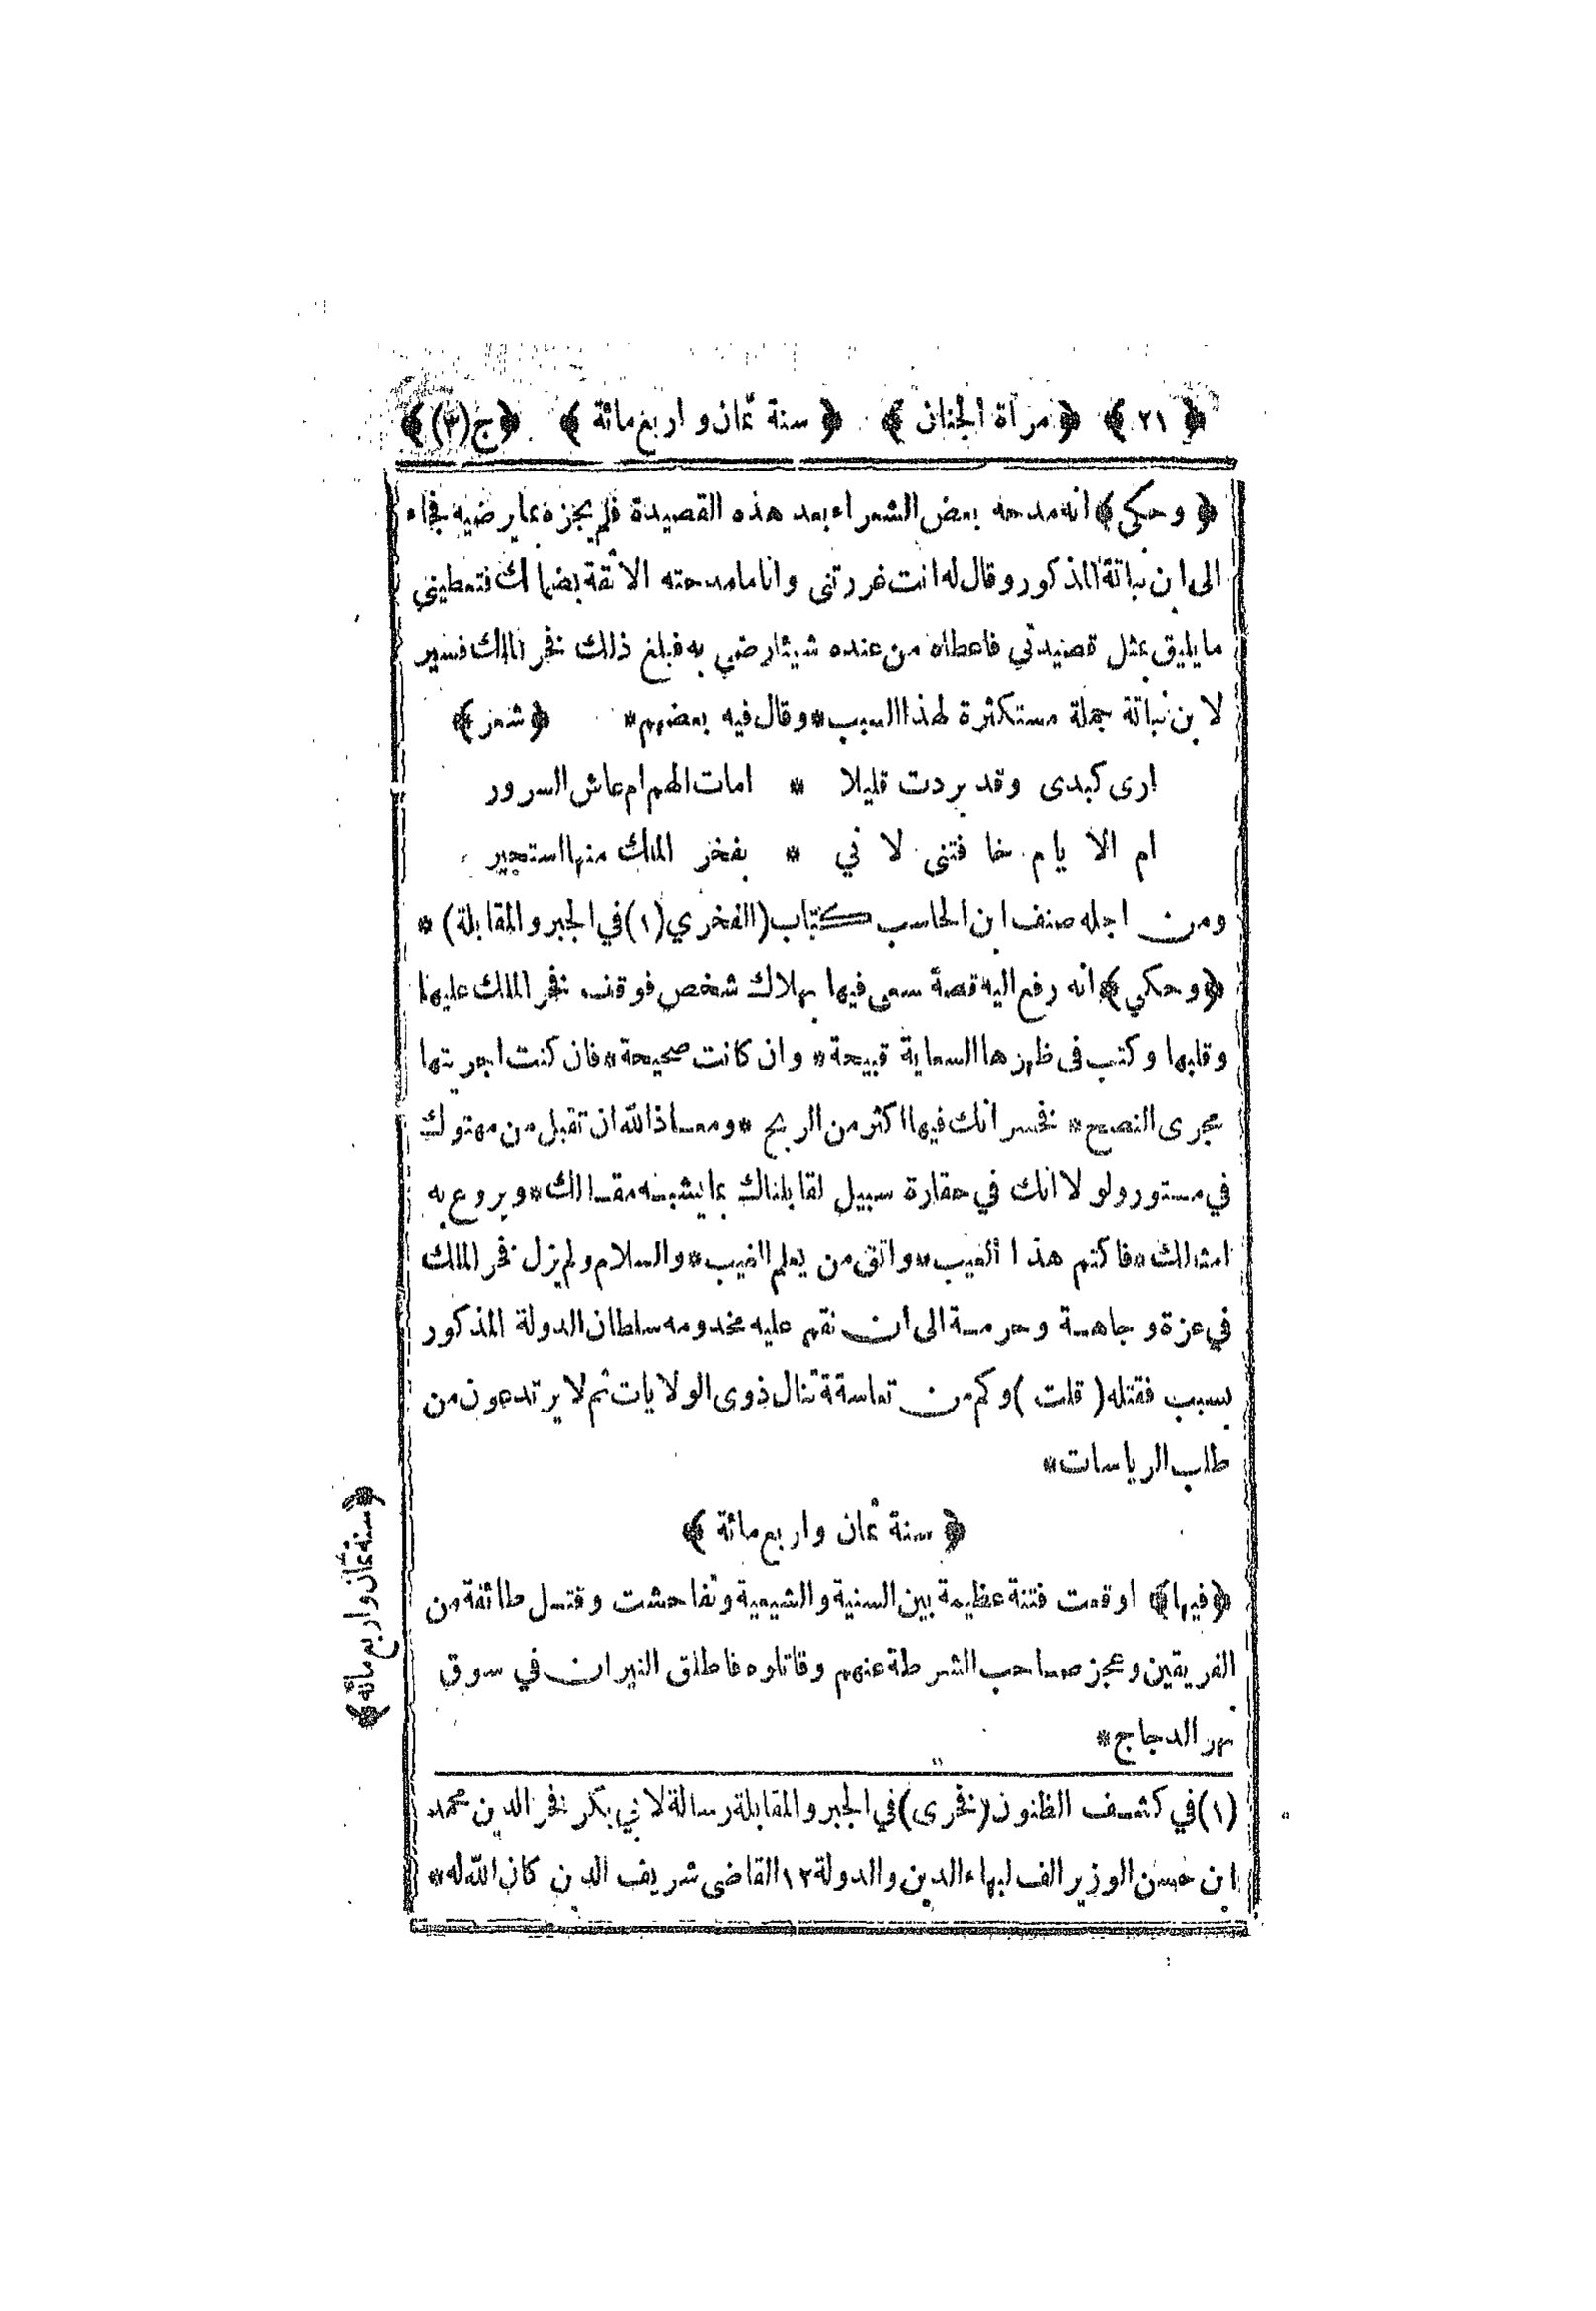 ﴿ ٢١ ﴾ ﴿ مرآة الجنان ﴾ ﴿ سنة ثمان و اربع مائة ﴾ ﴿ج(٣)﴾
﴿ وحكى﴾ انه مدحه بعض الشعراء بعد هذه القصيدة فلم يجزه بما يرضيه فجاء
الى ابن نباتة المذكور وقال له انت غررتنى وانا ما مدحته الا ثقة بضمانك فتعطيني
ما يليق بمثل قصيدتي فاعطاه من عنده شيئا رضي به فبلغ ذلك فخر الملك فسير
لابن نباتة جملة مستكثرة لهذا السبب * وقال فيه بعضهم * ﴿ شعر ﴾
ارى كبدى وقد بردت قليلا * امات الهم ام عاش السرور
ام الا يام خا فتنى لا ني * بفخر الملك منها استجير
ومن اجله صنف ابن الحاسب كتاب (الفخري (١) في الجبر والمقابلة) *
﴿وحكي﴾ انه رفع اليه قصة سعى فيها بهلاك شخص فوقف فخر الملك عليها
وقلبها وكتب فى ظهرها السعاية قبيحة * وان كانت صحيحة * فان كنت اجريتها
مجرى النصح * فخسرانك فيها اكثر من الربح * ومعاذ الله ان تقبل من مهتوك
في مستور ولو لا انك في حقارة سبيل لقابلناك بما يشبه مقالك * ويروع به
امثالك * فاكتم هذا العيب * واتق من يعلم الغيب * والسلام ولم يزل فخر الملك
في عزة و جاهة وحرمة الى ان نقم عليه مخدومه سلطان الدولة المذكور
بسبب فقتله ( قلت ) وكم من تعاسة تنال ذوى الولايات ثم لا يرتدعون من
طلب الرياسات *
﴿ سنة ثمان واربع مائة ﴾
﴿فيها﴾ اوقعت فتنة عظيمة بين السنية والشيعية وتفاحشت وقتل طائفة من
الفريقين وعجز صاحب الشرطة عنهم وقاتلوه فاطلق النيران في سوق
نهر الدجاج *
﴿سنة ثمان واربع مائة﴾
(١) في كشف الظنون (فخرى) في الجبر والمقابلة رسالة لابي بكر فخر الدين محمد
ابن حسن الوزير الف لبهاء الدين والدولة ١٢ القاضى شريف الدين كان الله له *